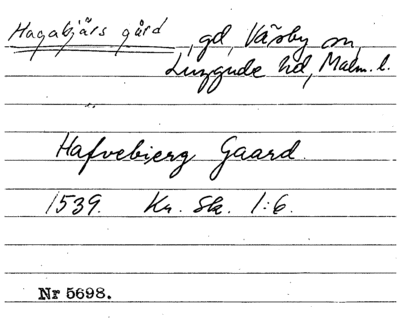 Hagabjärs gård, gd, Väsby sn,
Luggude hd, Malm. l.
Hafvebierg Gaard.
1539. Kr. Sk. 1:6.
Nr 5698.